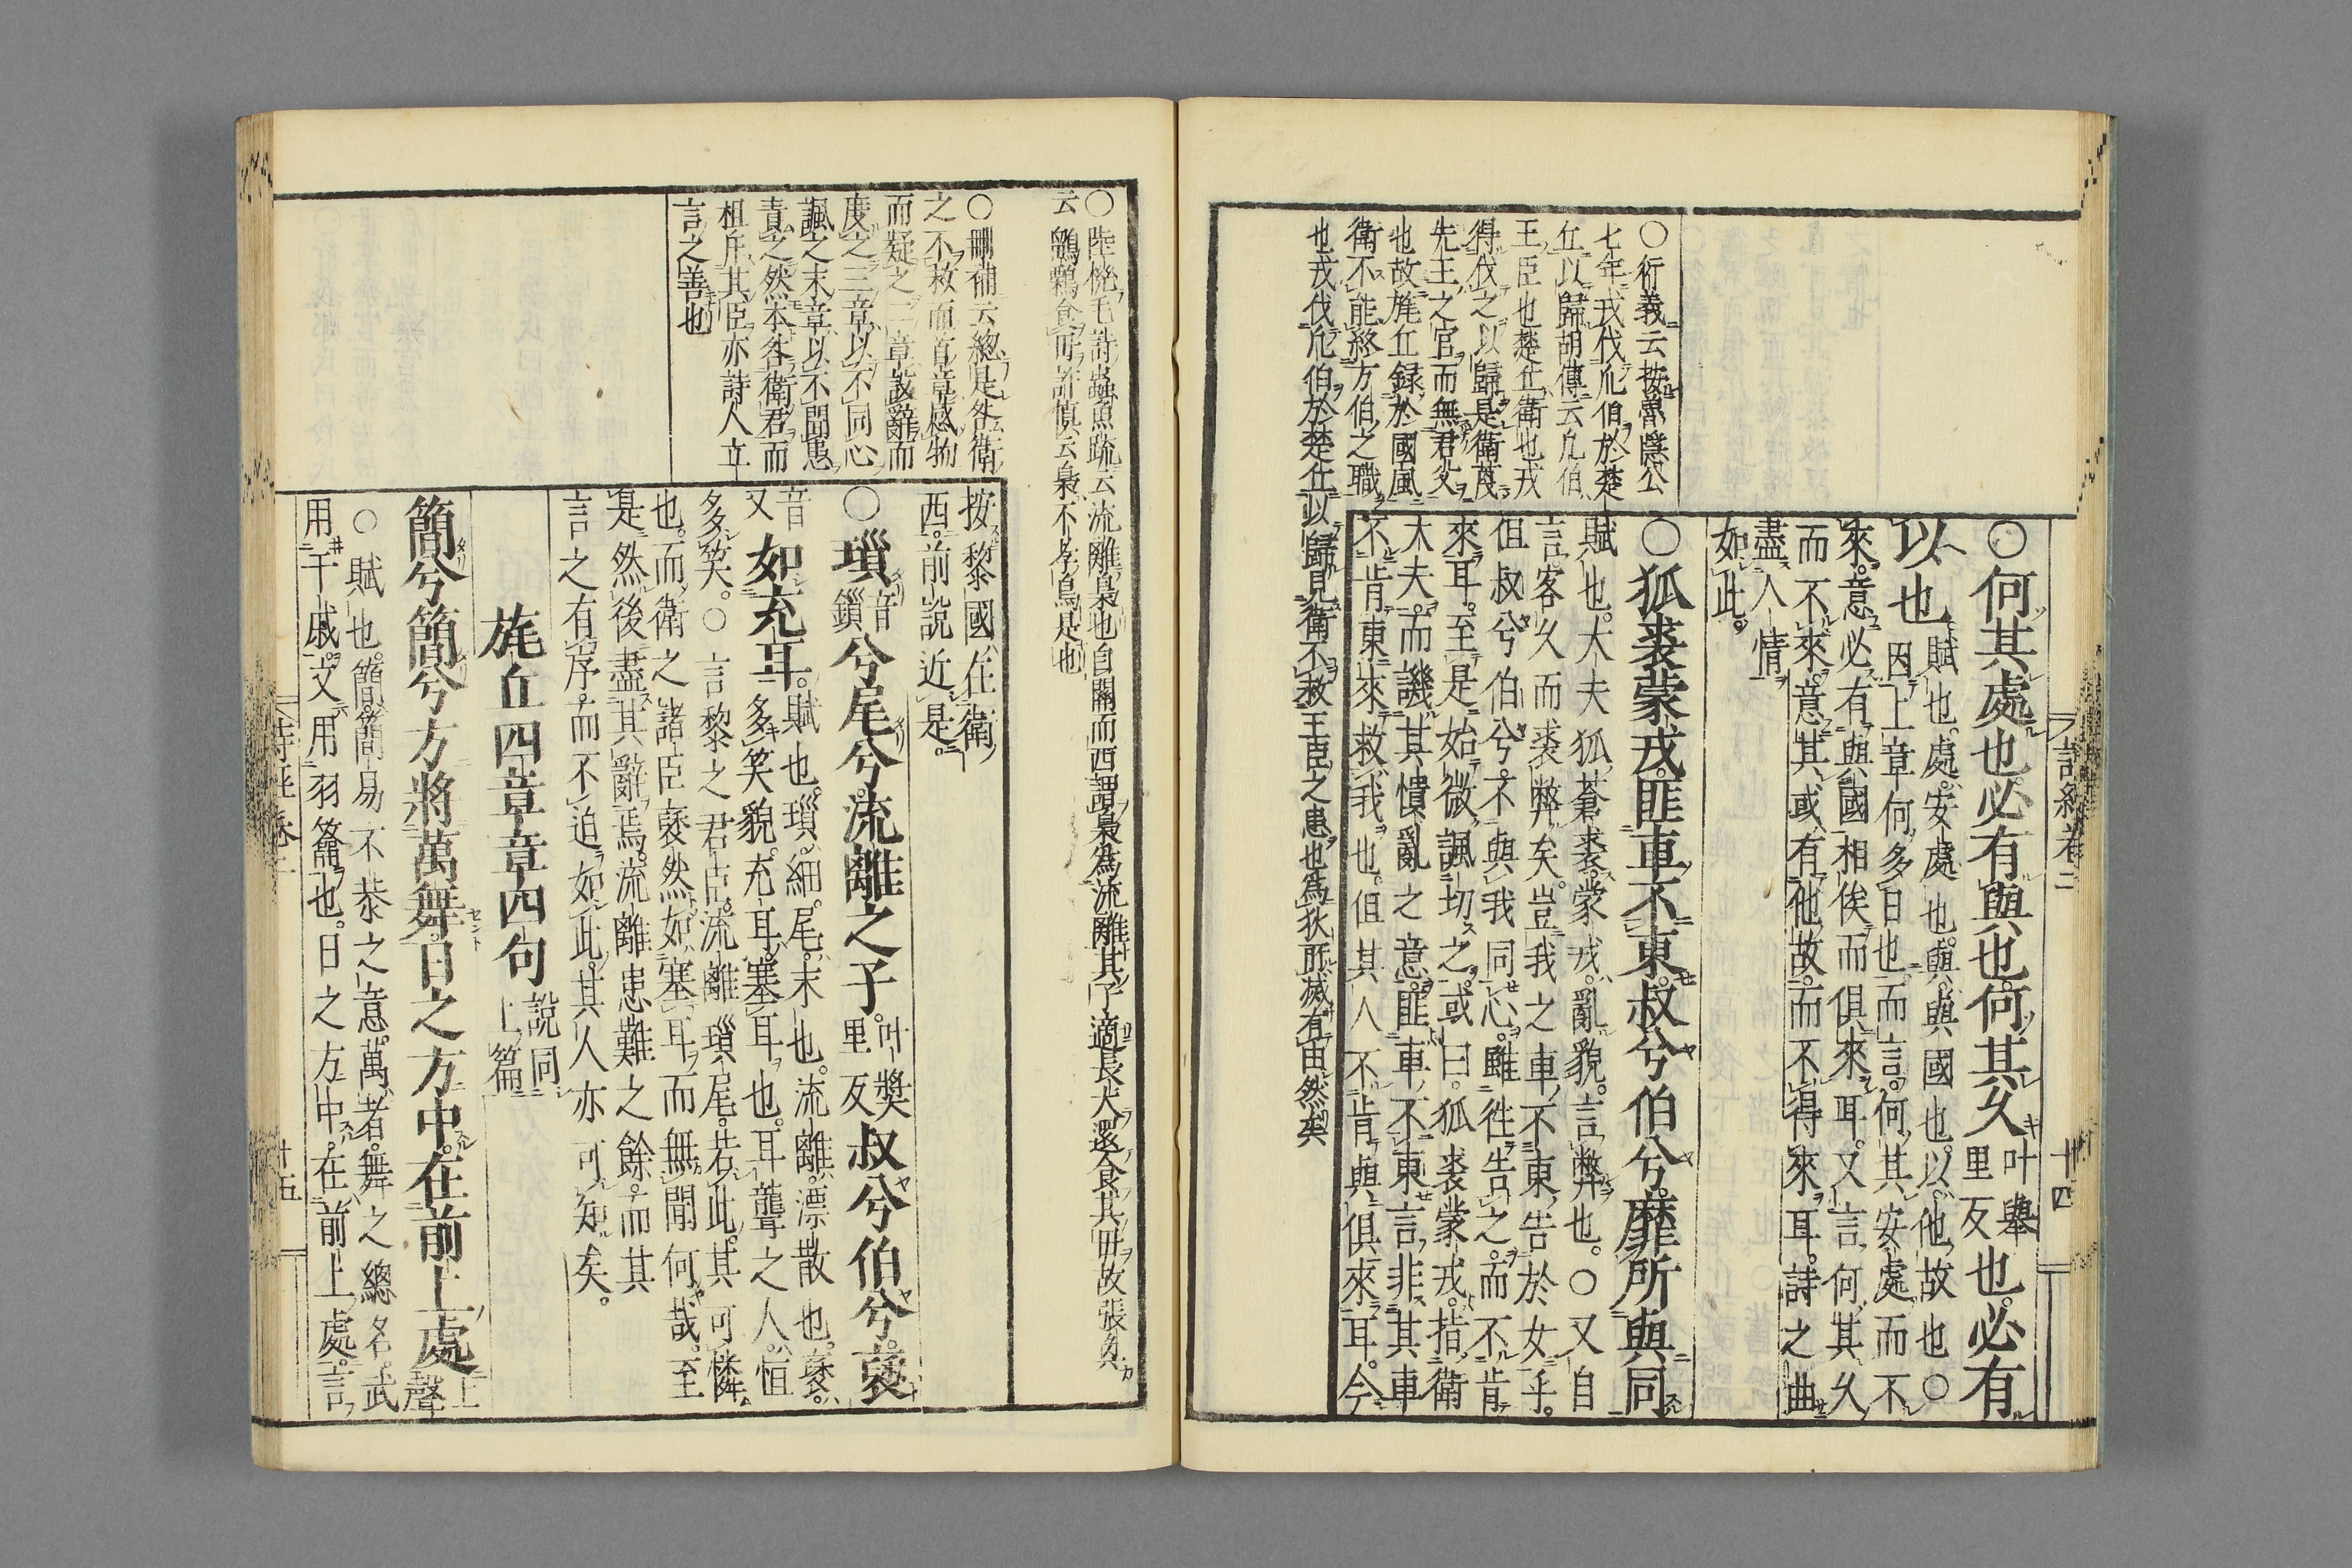 詩經卷二
十四
○何其處也必有與也何其久叶舉里反也必有
以也賦也。處。安處也。與。與國也。以。他故也○
因上章何多日也而言。何其安處而不
來。意必有與國相俟而俱來耳。又言。何其久
而不來。意其或有他故。而不得來耳。詩之曲
盡人情
如此。
○狐裘蒙戎匪車不東叔兮伯兮靡所與同
賦也。大夫狐蒼裘。蒙戎。亂貌。言弊也。○又自
言。客久而裘弊矣。豈我之車。不東告於女乎。
但叔兮伯兮。不與我同心。雖往告之。而不肯
來耳。至是始微諷切之。或曰。狐裘蒙戎。指衛
大夫。而譏其憒亂之意。匪車不東言。非其車
不肯東來救我也。但其人不肯與俱來耳。今
○衍義云按魯隱公
七年戎伐凡伯於楚
丘以歸胡傳云凡伯
王臣也楚丘衛也戎
得伐之以歸是衛蔑
先王之官而無君父
也故旄丘録於國風
衛不能終方伯之職
也戎伐凡伯於楚丘以歸見衛不救王臣之患也為狄所滅有由然矣
○陸機毛詩蟲魚疏云流離梟也自關而西謂梟為流離其子適長大還食其母故張奐
云鶹鷅食母許慎云梟不孝鳥是也
按黎國在衛
西。前說近是。
○瑣音鎖兮尾兮流離之子。叶獎里反叔兮伯兮褎
音又如充耳。賦也。瑣。細。尾。末也。流離。漂散也。褎。
多笑貌。充耳。塞耳也。耳聾之人。恒
多笑。○言黎之君臣。流離瑣尾。若此。其可憐
也。而衛之諸臣褎然如塞耳。而無聞何哉。至
是然後盡其辭焉。流離患難之餘。而其
言之有序。而不迫如此。其人亦可知矣。
旄丘四章章四句說同上篇
簡兮簡兮方將萬舞日之方中。在前上處上聲
○賦也。簡。簡易不恭之意。萬者。舞之總名。武
用干戚。文用羽籥也。日之方中。在前上處。言
○刪補云總是咎衛
之不救而首章感物
而疑之二章設辭而
度之三章以不同心
諷之末章以不聞患
責之然本咎衛君而
柤斥其臣亦詩人立
言之善也
十五